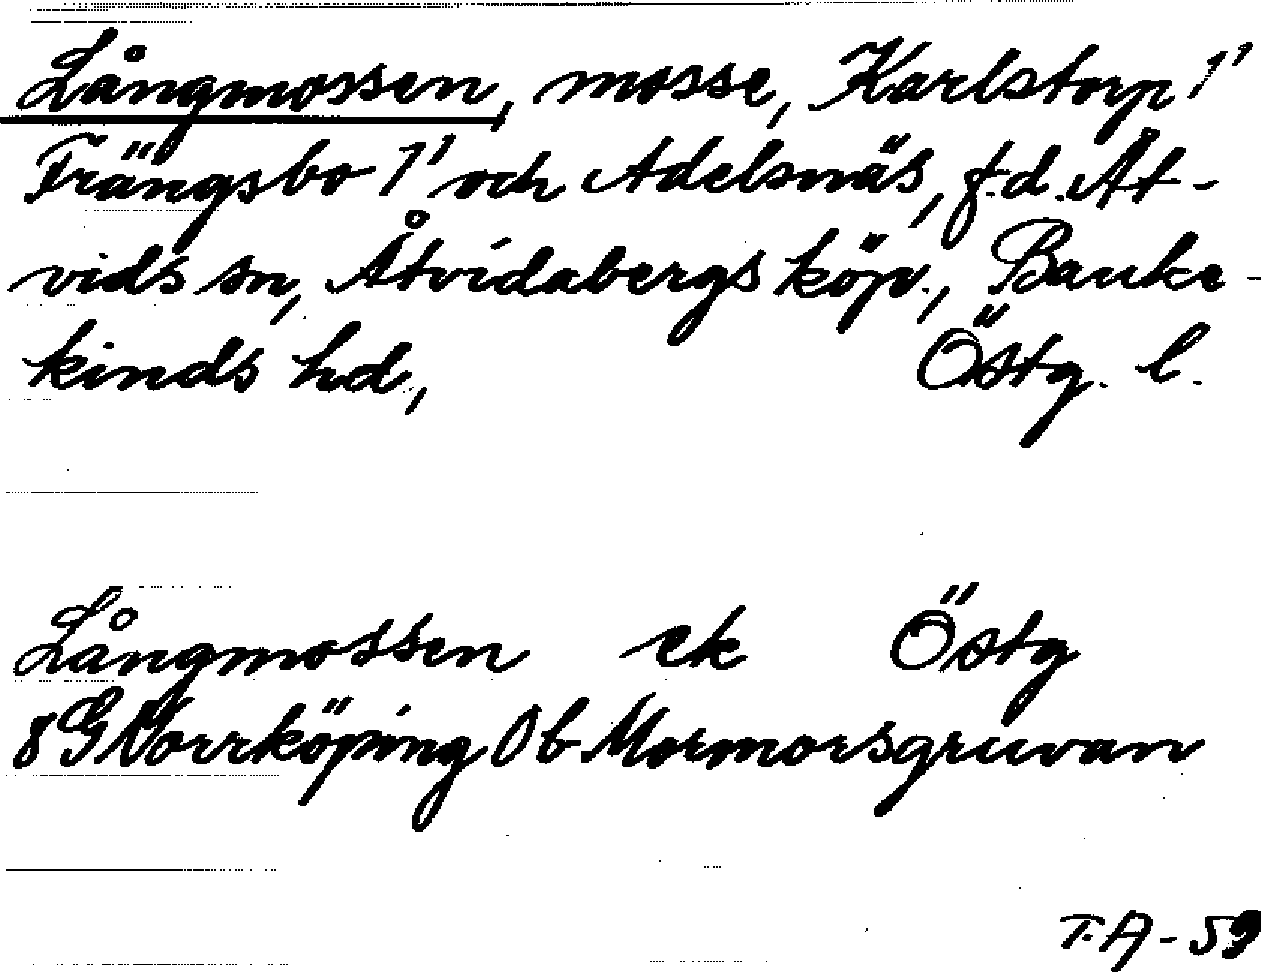 Långmossen, mosse, Karlstorp 1¹
Frängsbo 1¹ och Adelsnäs, f.d. Åt-
vids sn, Åtvidabergs köp., Banke-
kinds hd, Östg. l.
Långmossen ek Östg
8G Norrköping 0b Mormorsgruvan
T.A-59